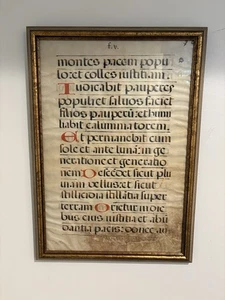 montes pacem popu
lo: et colles iustitiam.
Iudicabit pauperes
populi et saluos faciet
filios pauperũ: et humi
liabit calumniatorem.
Et permanebit cum
sole et ante lunã: in ge
neratione et generatio
nem Descẽdet sicut plu
uia in vellus: et sicut
stillicidia stillãtia super
terram Orietur in die
bus eius iustitia et abũ
dantia pacis: donec au